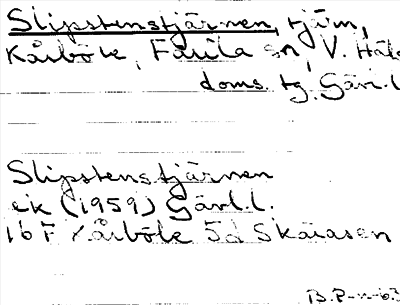 Slipstenstjärnen, tjärn,
Kårböle, Färila sn, V. Häl-
doms. tg, Gävl.l
Slipstenstjärnen
ek (1959) Gävl.l.
16 F Kårböle 5d Skåråsen